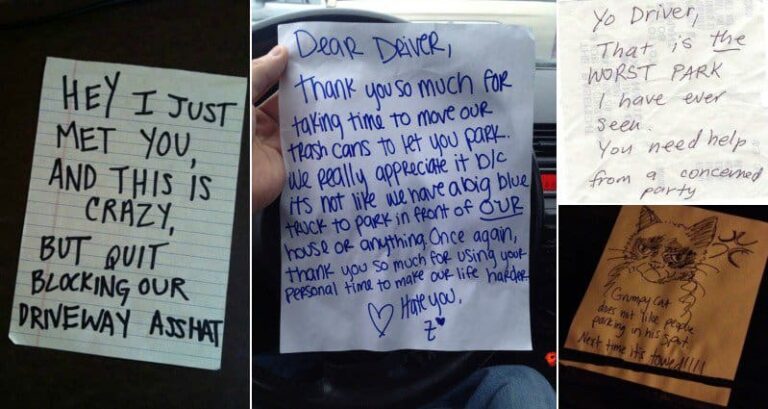 HEY I JUST
MET YOU,
AND THIS IS
CRAZY,
BUT QUIT
BLOCKING OUR
DRIVEWAY ASSHAT
Dear Driver,
Thank you so much for
taking time to move our
trash cans to let you park.
We really appreciate it b/c
it's not like we have a big blue
truck to park in front of OUR
house or anything. Once again,
thank you so much for using your
personal time to make our life harder
♡ Hate you,
Z♥
Yo Driver,
That is the
WORST PARK
I have ever
seen.
You need help
from a concerned
party
Grumpy Cat
does not like people
parking in his spot
Next time it's towed!!!!!